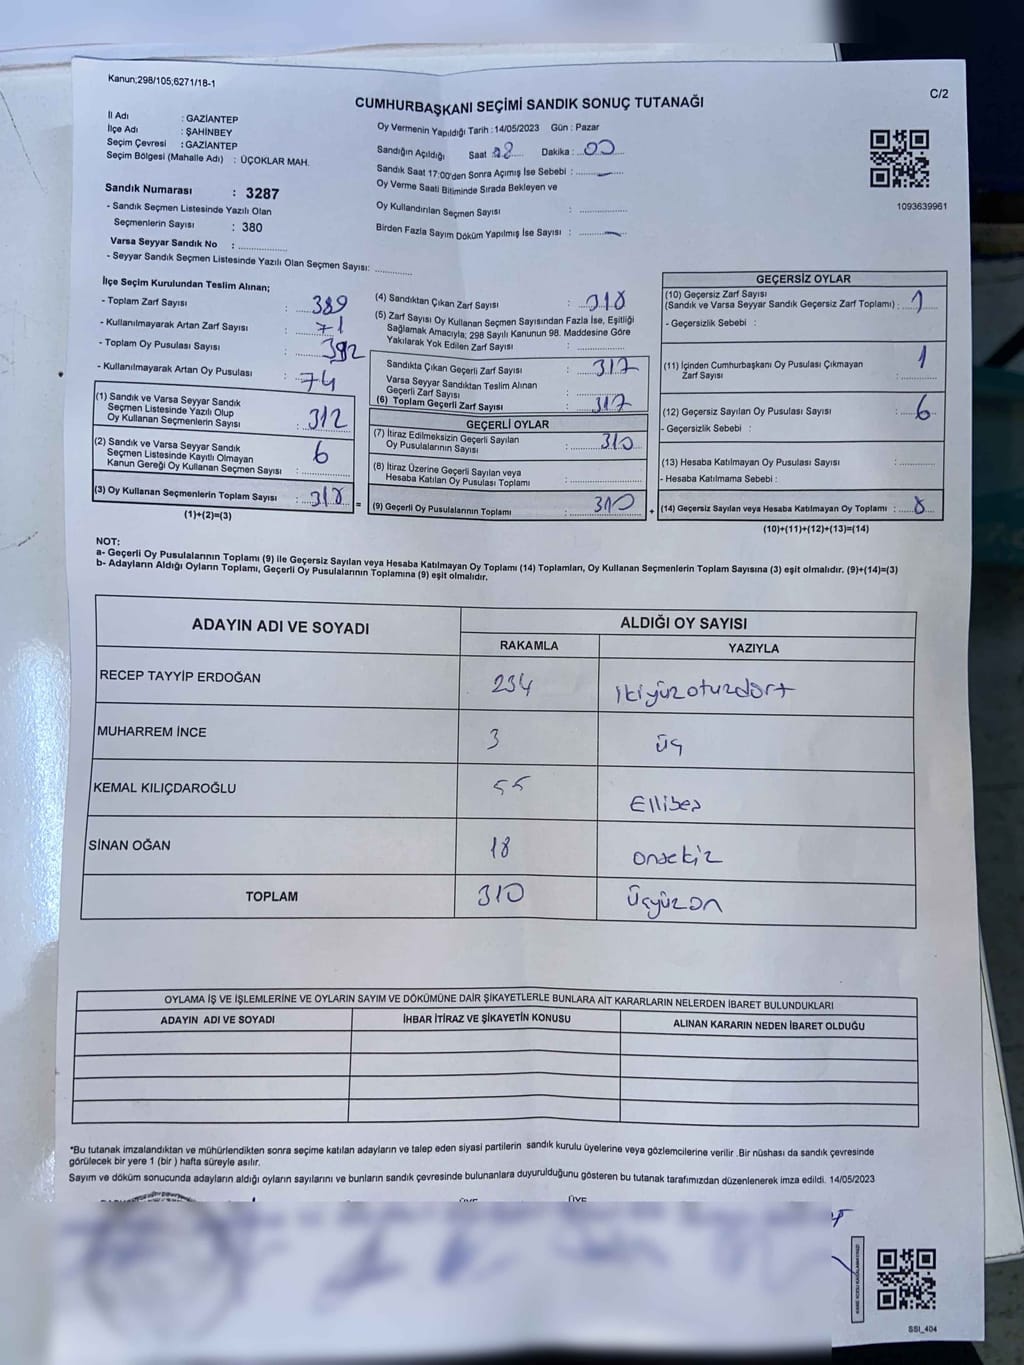 Kanun;298/105;6271/18-1
C/2
CUMHURBAŞKANI SEÇİMİ SANDIK SONUÇ TUTANAĞI
İl Adı : GAZİANTEP
İlçe Adı : ŞAHİNBEY
Seçim Çevresi : GAZİANTEP
Seçim Bölgesi (Mahalle Adı) : ÜÇOKLAR MAH.
Sandık Numarası : 3287
- Sandık Seçmen Listesinde Yazılı Olan
Seçmenlerin Sayısı : 380
Varsa Seyyar Sandık No : ..............
- Seyyar Sandık Seçmen Listesinde Yazılı Olan Seçmen Sayısı: ............
Oy Vermenin Yapıldığı Tarih : 14/05/2023 Gün : Pazar
Sandığın Açıldığı Saat Dakika : 00
Sandık Saat 17:00'den Sonra Açımış İse Sebebi :
Oy Verme Saati Bitiminde Sırada Bekleyen ve
Oy Kullandırılan Seçmen Sayısı : ..............
Birden Fazla Sayım Döküm Yapılmış İse Sayısı :
1093639961
İlçe Seçim Kurulundan Teslim Alınan;
- Toplam Zarf Sayısı : 389
- Kullanılmayarak Artan Zarf Sayısı : 71
- Toplam Oy Pusulası Sayısı : 392
- Kullanılmayarak Artan Oy Pusulası : 74
(1) Sandık ve Varsa Seyyar Sandık
Seçmen Listesinde Yazılı Olup
Oy Kullanan Seçmenlerin Sayısı : 312
(2) Sandık ve Varsa Seyyar Sandık
Seçmen Listesinde Kayıtlı Olmayan
Kanun Gereği Oy Kullanan Seçmen Sayısı : 6
(3) Oy Kullanan Seçmenlerin Toplam Sayısı : 318 =
(1)+(2)=(3)
(4) Sandıktan Çıkan Zarf Sayısı : 318
(5) Zarf Sayısı Oy Kullanan Seçmen Sayısından Fazla İse, Eşitliği
Sağlamak Amacıyla; 298 Sayılı Kanunun 98. Maddesine Göre
Yakılarak Yok Edilen Zarf Sayısı : ..............
Sandıkta Çıkan Geçerli Zarf Sayısı : 317
Varsa Seyyar Sandıktan Teslim Alınan
Geçerli Zarf Sayısı : ..............
(6) Toplam Geçerli Zarf Sayısı : 317
GEÇERLİ OYLAR
(7) İtiraz Edilmeksizin Geçerli Sayılan
Oy Pusulalarının Sayısı : 310
(8) İtiraz Üzerine Geçerli Sayılan veya
Hesaba Katılan Oy Pusulası Toplamı : ..............
(9) Geçerli Oy Pusulalarının Toplamı : 310 +
GEÇERSİZ OYLAR
(10) Geçersiz Zarf Sayısı
(Sandık ve Varsa Seyyar Sandık Geçersiz Zarf Toplamı) : 1
- Geçersizlik Sebebi :
(11) İçinden Cumhurbaşkanı Oy Pusulası Çıkmayan
Zarf Sayısı : 1
(12) Geçersiz Sayılan Oy Pusulası Sayısı : 6
- Geçersizlik Sebebi :
(13) Hesaba Katılmayan Oy Pusulası Sayısı : ............
- Hesaba Katılmama Sebebi :
(14) Geçersiz Sayılan veya Hesaba Katılmayan Oy Toplamı : 8
(10)+(11)+(12)+(13)=(14)
NOT:
a- Geçerli Oy Pusulalarının Toplamı (9) ile Geçersiz Sayılan veya Hesaba Katılmayan Oy Toplamı (14) Toplamları, Oy Kullanan Seçmenlerin Toplam Sayısına (3) eşit olmalıdır. (9)+(14)=(3)
b- Adayların Aldığı Oyların Toplamı, Geçerli Oy Pusulalarının Toplamına (9) eşit olmalıdır.
ADAYIN ADI VE SOYADI
ALDIĞI OY SAYISI
RAKAMLA YAZIYLA
RECEP TAYYİP ERDOĞAN 234 ikiyüzotuzdört
MUHARREM İNCE 3 üç
KEMAL KILIÇDAROĞLU 55 Ellibeş
SİNAN OĞAN 18 onsekiz
TOPLAM 310 Üçyüzon
OYLAMA İŞ VE İŞLEMLERİNE VE OYLARIN SAYIM VE DÖKÜMÜNE DAİR ŞİKAYETLERLE BUNLARA AİT KARARLARIN NELERDEN İBARET BULUNDUKLARI
ADAYIN ADI VE SOYADI İHBAR İTİRAZ VE ŞİKAYETİN KONUSU ALINAN KARARIN NEDEN İBARET OLDUĞU
*Bu tutanak imzalandıktan ve mühürlendikten sonra seçime katılan adayların ve talep eden siyasi partilerin sandık kurulu üyelerine veya gözlemcilerine verilir .Bir nüshası da sandık çevresinde
görülecek bir yere 1 (bir ) hafta süreyle asılır.
Sayım ve döküm sonucunda adayların aldığı oyların sayılarını ve bunların sandık çevresinde bulunanlara duyurulduğunu gösteren bu tutanak tarafımızdan düzenlenerek imza edildi. 14/05/2023
ÜYE
SSI_404